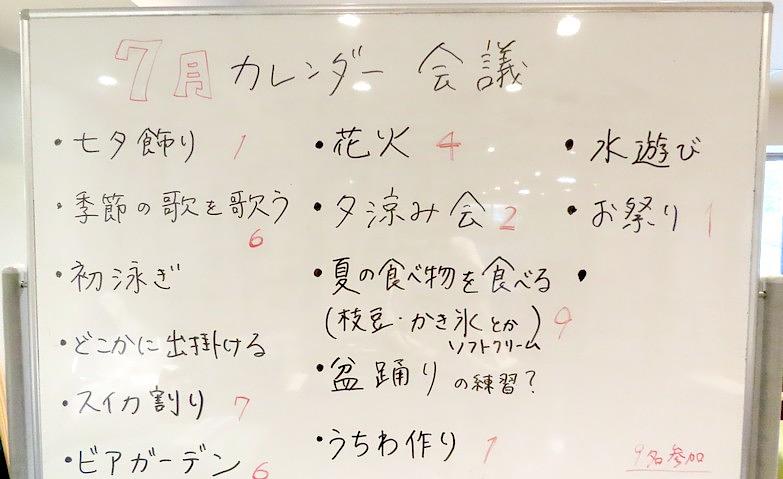 7月 カレンダー 会議
・七夕飾り 1
・季節の歌を歌う
6
・初泳ぎ
・どこかに出掛ける
・スイカ割り 7
・ビアガーデン 6
・花火 4
・夕涼み会 2
・夏の食べ物を食べる
(枝豆・かき氷とか) 9
ソフトクリーム
・盆踊りの練習?
・うちわ作り 1
・水遊び
・お祭り 1
・
9名参加